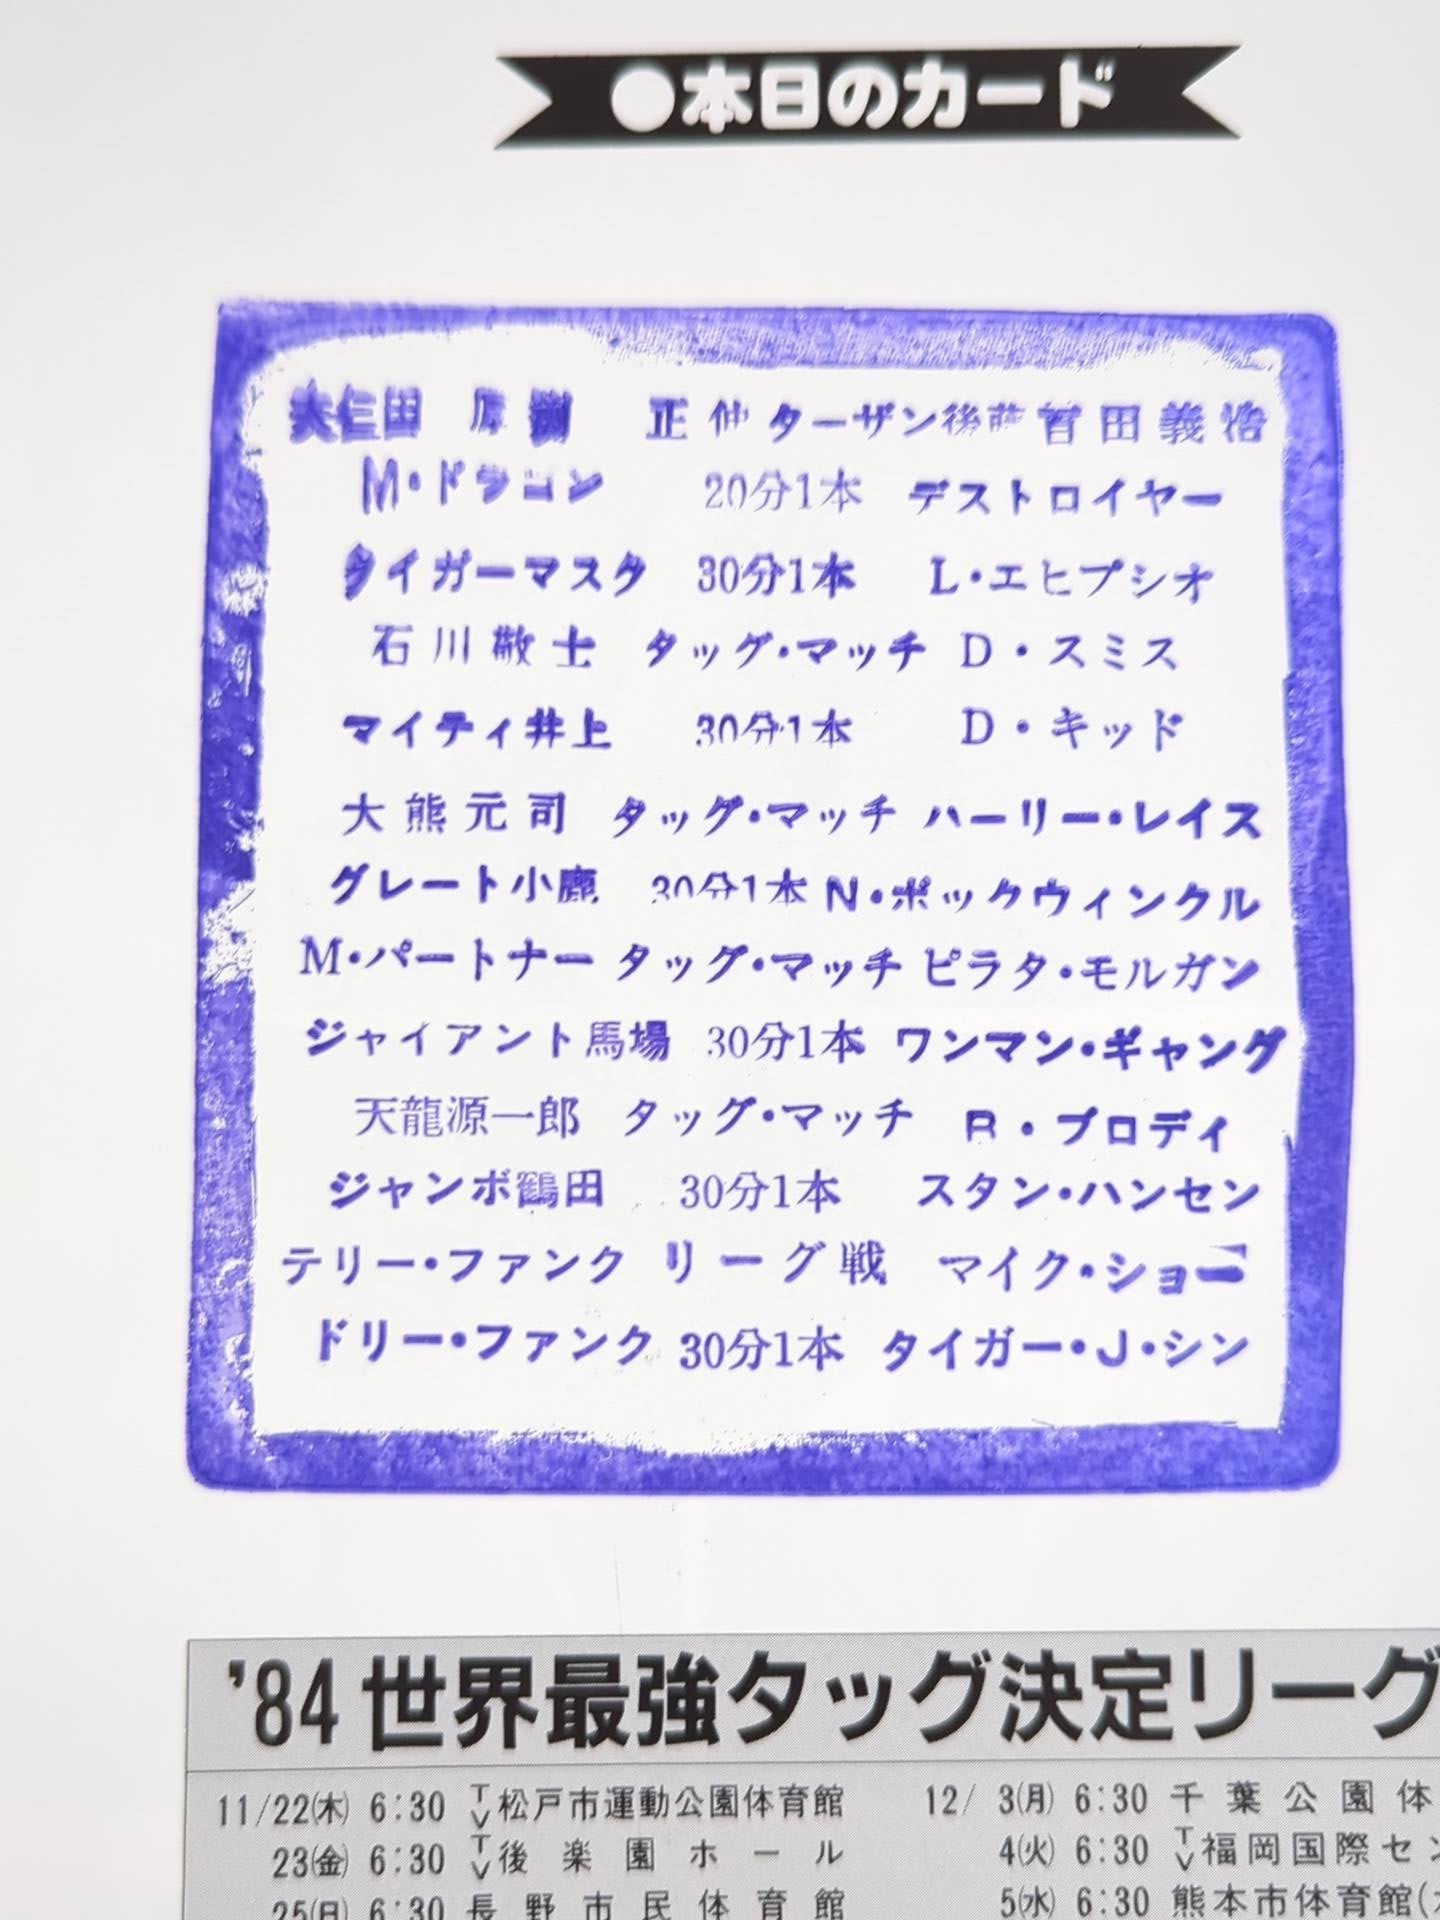 ●本日のカード
大仁田 厚 渕 正 伸 ターザン後藤 冨田義浩
M・ドラゴン 20分1本 デストロイヤー
タイガーマスク 30分1本 L・エヒプシオ
石川敬士 タッグ・マッチ D・スミス
マイティ井上 30分1本 D・キッド
大熊元司 タッグ・マッチ ハーリー・レイス
グレート小鹿 30分1本 N・ボックウィンクル
M・パートナー タッグ・マッチ ピラタ・モルガン
ジャイアント馬場 30分1本 ワンマン・ギャング
天龍源一郎 タッグ・マッチ B・ブロディ
ジャンボ鶴田 30分1本 スタン・ハンセン
テリー・ファンク リーグ戦 マイク・ショー
ドリー・ファンク 30分1本 タイガー・J・シン
'84世界最強タッグ決定リーグ
11/22(木) 6:30 TV 松戸市運動公園体育館
23(金) 6:30 TV 後楽園ホール
25(日) 6:30 長野市民体育館
12/ 3(月) 6:30 千葉公園体
4(火) 6:30 TV 福岡国際セン
5(水) 6:30 熊本市体育館(